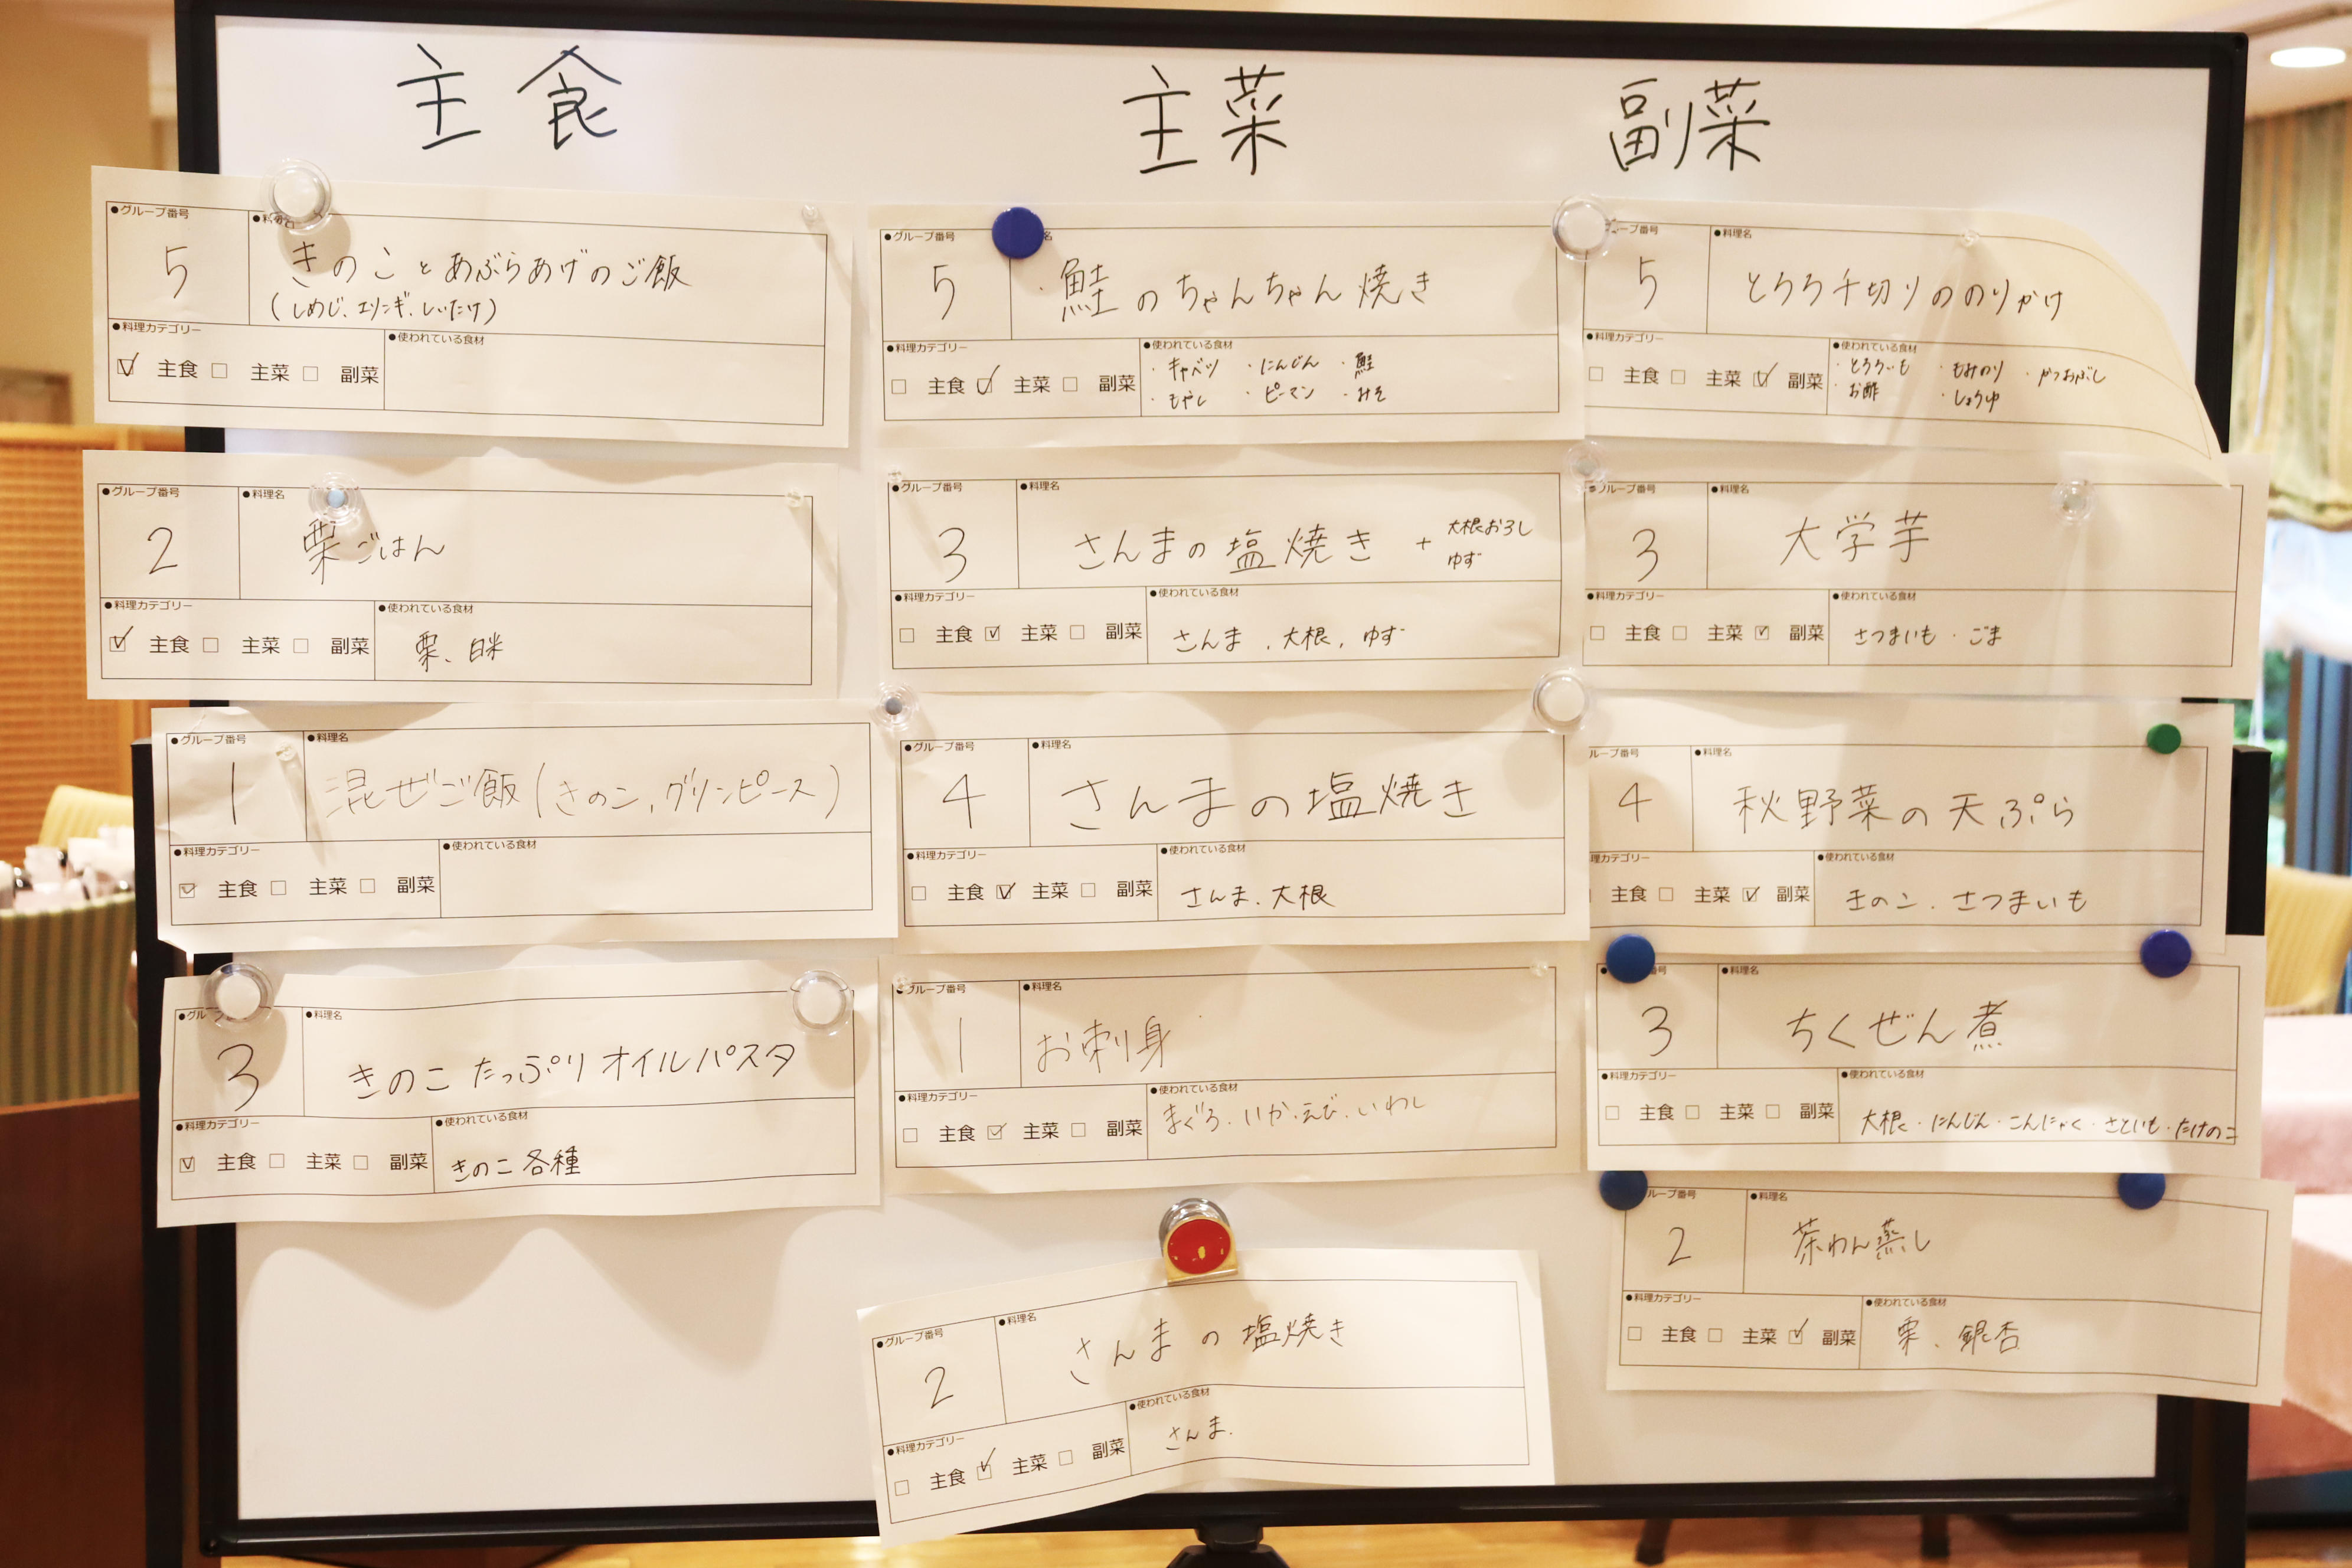 主食
主菜
副菜
●グループ番号
5
きのことあぶらあげのご飯
(しめじ、エリンギ、しいたけ)
●料理カテゴリー
主食 主菜 副菜
●使われている食材
●グループ番号
2
●料理名
栗ごはん
●料理カテゴリー
主食 主菜 副菜
●使われている食材
栗、白米
●グループ番号
1
●料理名
混ぜご飯(きのこ,グリンピース)
●料理カテゴリー
主食 主菜 副菜
●使われている食材
3
●料理名
きのこたっぷりオイルパスタ
●料理カテゴリー
主食 主菜 副菜
●使われている食材
きのこ各種
●グループ番号
5
名
鮭のちゃんちゃん焼き
●料理カテゴリー
主食 主菜 副菜
●使われている食材
・キャベツ ・にんじん ・鮭
・もやし ・ピーマン ・みそ
●グループ番号
3
●料理名
さんまの塩焼き + 大根おろし
ゆず
●料理カテゴリー
主食 主菜 副菜
●使われている食材
さんま、大根、ゆず
●グループ番号
4
●料理名
さんまの塩焼き
●料理カテゴリー
主食 主菜 副菜
●使われている食材
さんま、大根
グループ番号
1
●料理名
お刺身
●料理カテゴリー
主食 主菜 副菜
●使われている食材
まぐろ、いか、えび、いわし
●グループ番号
2
●料理名
さんまの塩焼き
●料理カテゴリー
主食 主菜 副菜
●使われている食材
さんま.
ループ番号
5
●料理名
とろろ千切りののりかけ
●料理カテゴリー
主食 主菜 副菜
●使われている食材
・とろろいも ・もみのり ・かつおぶし
・お酢 ・しょうゆ
グループ番号
3
●料理名
大学芋
●料理カテゴリー
主食 主菜 副菜
●使われている食材
さつまいも・ごま
ループ番号
4
●料理名
秋野菜の天ぷら
料理カテゴリー
主食 主菜 副菜
●使われている食材
きのこ、さつまいも
番号
3
●料理名
ちくぜん煮
●料理カテゴリー
主食 主菜 副菜
●使われている食材
大根・にんじん・こんにゃく・さといも・たけのこ
ループ番号
2
●料理名
茶わん蒸し
●料理カテゴリー
主食 主菜 副菜
●使われている食材
栗、銀杏